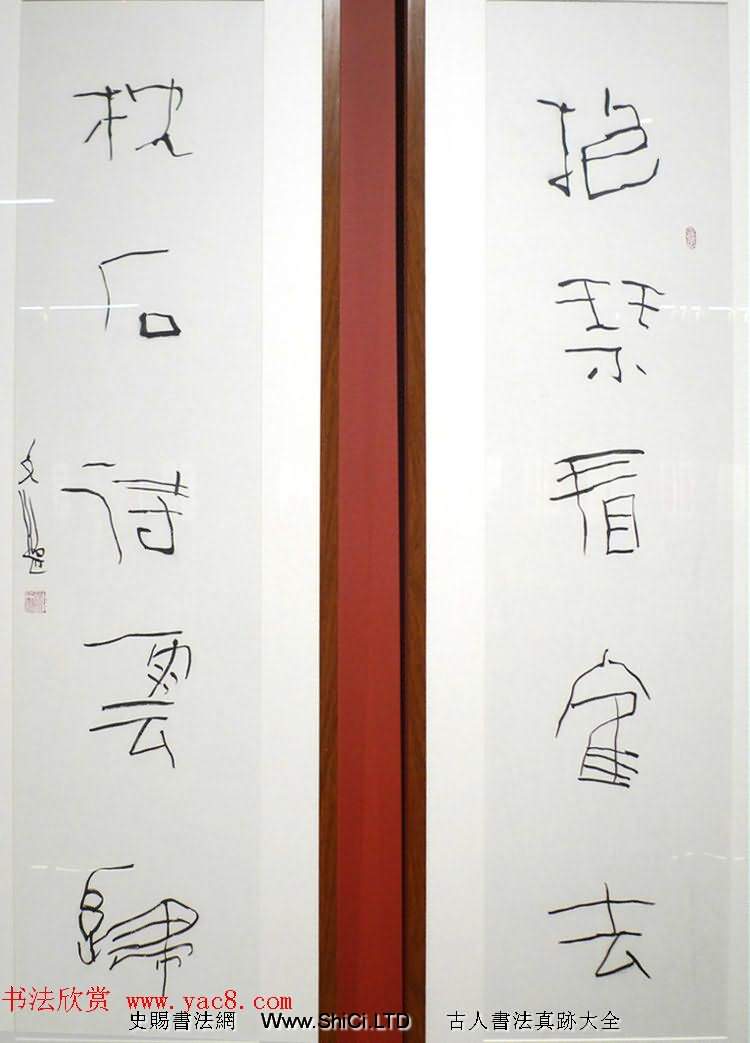 抱琴看隺去
枕石待雲歸
书法欣赏 www.yac8.com
史賜書法網 Www.ShiCi.LTD 古人書法真跡大全